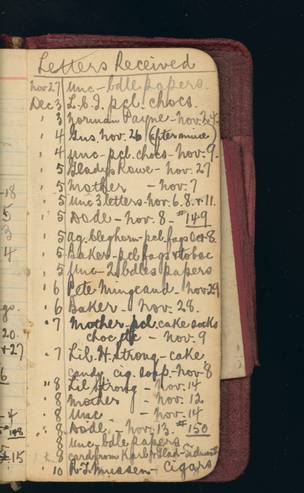 Letters Received
Nov 27 Unc - bdle papers.
Dec 3 L.C.I. pcl. chocs.
" 3 Norman Payne - Nov. 3.4.
" 4 Gus. Nov. 26 (after armice)
" 4 Unc - pcl. chocs - Nov. 9.
" 5 Gladys Rowe - Nov. 27
" 5 Mother - Nov. 7
" 5 Unc 3 letters - Nov. 6.8.+11.
" 5 Dode - Nov. 8 - #149
" 5 Ag. Cleghorn - pcl. fags Oct 8.
" 5 Baker - pcl fags + tobac
" 5 Unc - 2 bdles papers
" 6 Pete Mingeaud - Nov 29
" 6 Baker - Nov. 28.
" 7 Mother pcl. cake socks
choc etc - Nov. 9
" 7 Lil. H. Strong - cake
candy cig. soap - Nov - 8
" 8 Lil Strong - Nov. 14
" 8 Mother - Nov. 12
" 8 Unc - Nov. 14
" 8 Dode. - Nov. 13. #150
8 Unc. bdle papers
9 card from Karl + Glad -
10 R.J. Mussen - Cigars
18
5
3
4
go.
20
+27
6
4
5
15